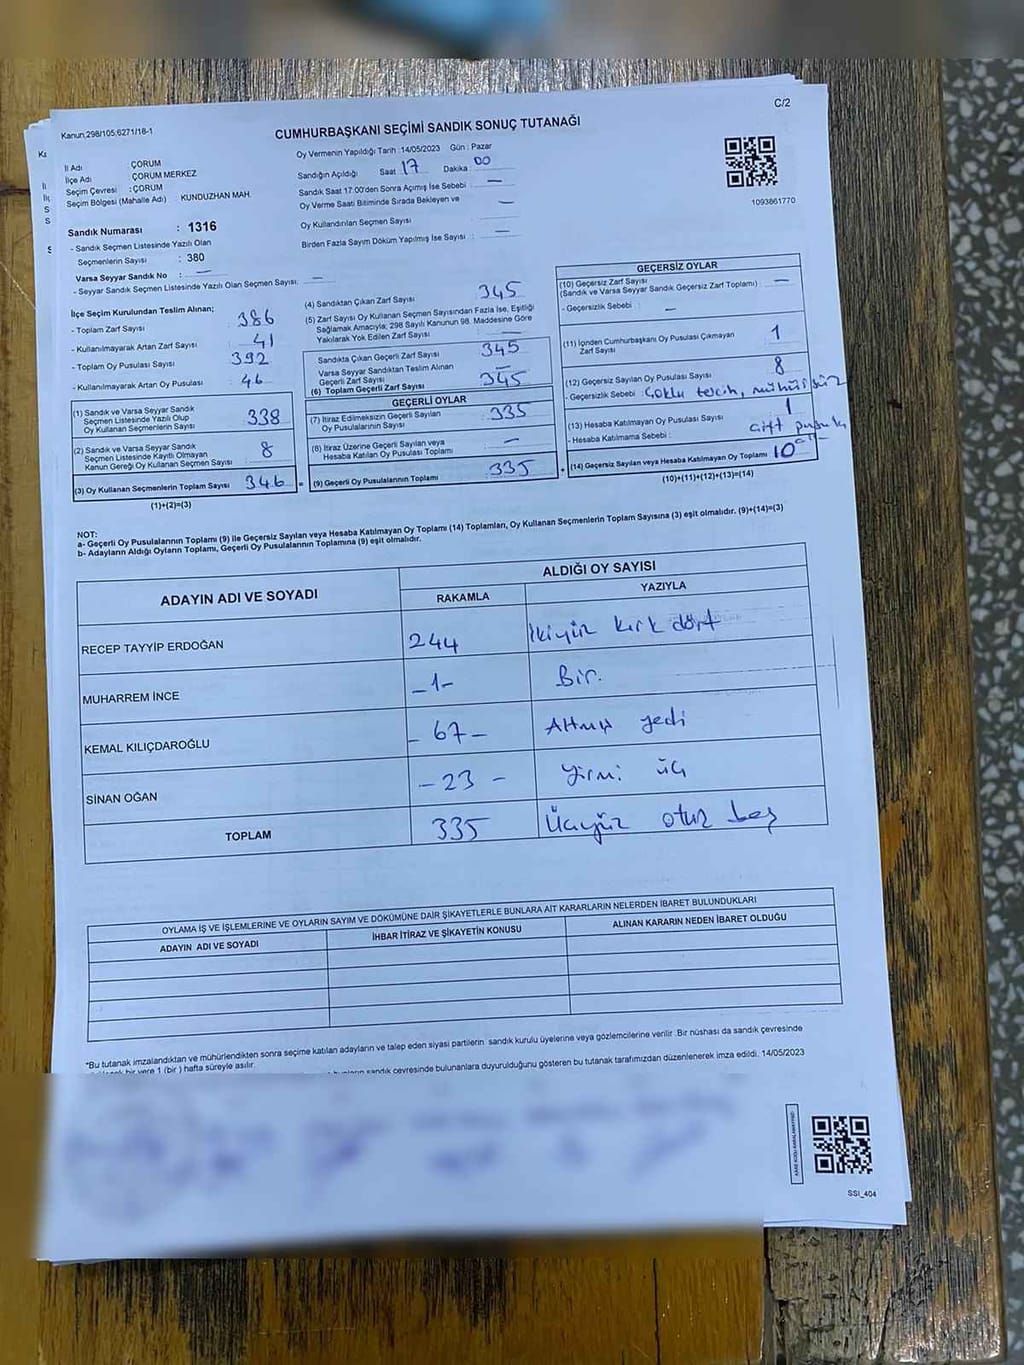 C/2
Kanun;298/105;6271/18-1
CUMHURBAŞKANI SEÇİMİ SANDIK SONUÇ TUTANAĞI
İl Adı ÇORUM
İlçe Adı ÇORUM MERKEZ
Seçim Çevresi : ÇORUM
Seçim Bölgesi (Mahalle Adı) : KUNDUZHAN MAH.
Sandık Numarası : 1316
- Sandık Seçmen Listesinde Yazılı Olan
Seçmenlerin Sayısı : 380
Varsa Seyyar Sandık No : —
- Seyyar Sandık Seçmen Listesinde Yazılı Olan Seçmen Sayısı: —
Oy Vermenin Yapıldığı Tarih : 14/05/2023 Gün : Pazar
Sandığın Açıldığı Saat 17 Dakika 00
Sandık Saat 17:00'den Sonra Açımış İse Sebebi —
Oy Verme Saati Bitiminde Sırada Bekleyen ve —
Oy Kullandırılan Seçmen Sayısı
Birden Fazla Sayım Döküm Yapılmış İse Sayısı : —
1093861770
İlçe Seçim Kurulundan Teslim Alınan;
- Toplam Zarf Sayısı 386
- Kullanılmayarak Artan Zarf Sayısı 41
- Toplam Oy Pusulası Sayısı 392
- Kullanılmayarak Artan Oy Pusulası 46
(1) Sandık ve Varsa Seyyar Sandık
Seçmen Listesinde Yazılı Olup
Oy Kullanan Seçmenlerin Sayısı 338
(2) Sandık ve Varsa Seyyar Sandık
Seçmen Listesinde Kayıtlı Olmayan
Kanun Gereği Oy Kullanan Seçmen Sayısı 8
(3) Oy Kullanan Seçmenlerin Toplam Sayısı 346
(1)+(2)=(3)
(4) Sandıktan Çıkan Zarf Sayısı 345
(5) Zarf Sayısı Oy Kullanan Seçmen Sayısından Fazla İse, Eşitliği
Sağlamak Amacıyla; 298 Sayılı Kanunun 98. Maddesine Göre
Yakılarak Yok Edilen Zarf Sayısı —
Sandıkta Çıkan Geçerli Zarf Sayısı 345
Varsa Seyyar Sandıktan Teslim Alınan —
Geçerli Zarf Sayısı
(6) Toplam Geçerli Zarf Sayısı 345
GEÇERLİ OYLAR
(7) İtiraz Edilmeksizin Geçerli Sayılan
Oy Pusulalarının Sayısı 335
(8) İtiraz Üzerine Geçerli Sayılan veya
Hesaba Katılan Oy Pusulası Toplamı —
(9) Geçerli Oy Pusulalarının Toplamı 335
GEÇERSİZ OYLAR
(10) Geçersiz Zarf Sayısı
(Sandık ve Varsa Seyyar Sandık Geçersiz Zarf Toplamı) —
- Geçersizlik Sebebi : —
(11) İçinden Cumhurbaşkanı Oy Pusulası Çıkmayan
Zarf Sayısı 1
(12) Geçersiz Sayılan Oy Pusulası Sayısı 8
- Geçersizlik Sebebi : Çoklu tercih, mühürsüz
(13) Hesaba Katılmayan Oy Pusulası Sayısı 1
- Hesaba Katılmama Sebebi : çift pusula
(14) Geçersiz Sayılan veya Hesaba Katılmayan Oy Toplamı 10
(10)+(11)+(12)+(13)=(14)
NOT:
a- Geçerli Oy Pusulalarının Toplamı (9) ile Geçersiz Sayılan veya Hesaba Katılmayan Oy Toplamı (14) Toplamları, Oy Kullanan Seçmenlerin Toplam Sayısına (3) eşit olmalıdır. (9)+(14)=(3)
b- Adayların Aldığı Oyların Toplamı, Geçerli Oy Pusulalarının Toplamına (9) eşit olmalıdır.
ADAYIN ADI VE SOYADI
ALDIĞI OY SAYISI
RAKAMLA YAZIYLA
RECEP TAYYİP ERDOĞAN 244 İkiyüz kırk dört
MUHARREM İNCE -1- Bir.
KEMAL KILIÇDAROĞLU - 67 - Altmış yedi
SİNAN OĞAN - 23 - Yirmi üç
TOPLAM 335 Üçyüz otuz beş
OYLAMA İŞ VE İŞLEMLERİNE VE OYLARIN SAYIM VE DÖKÜMÜNE DAİR ŞİKAYETLERLE BUNLARA AİT KARARLARIN NELERDEN İBARET BULUNDUKLARI
ADAYIN ADI VE SOYADI İHBAR İTİRAZ VE ŞİKAYETİN KONUSU ALINAN KARARIN NEDEN İBARET OLDUĞU
*Bu tutanak imzalandıktan ve mühürlendikten sonra seçime katılan adayların ve talep eden siyasi partilerin sandık kurulu üyelerine veya gözlemcilerine verilir. Bir nüshası da sandık çevresinde
bir yere 1 (bir) hafta süreyle asılır.
sandık çevresinde bulunanlara duyurulduğunu gösteren bu tutanak tarafımızdan düzenlenerek imza edildi. 14/05/2023
SSI_404